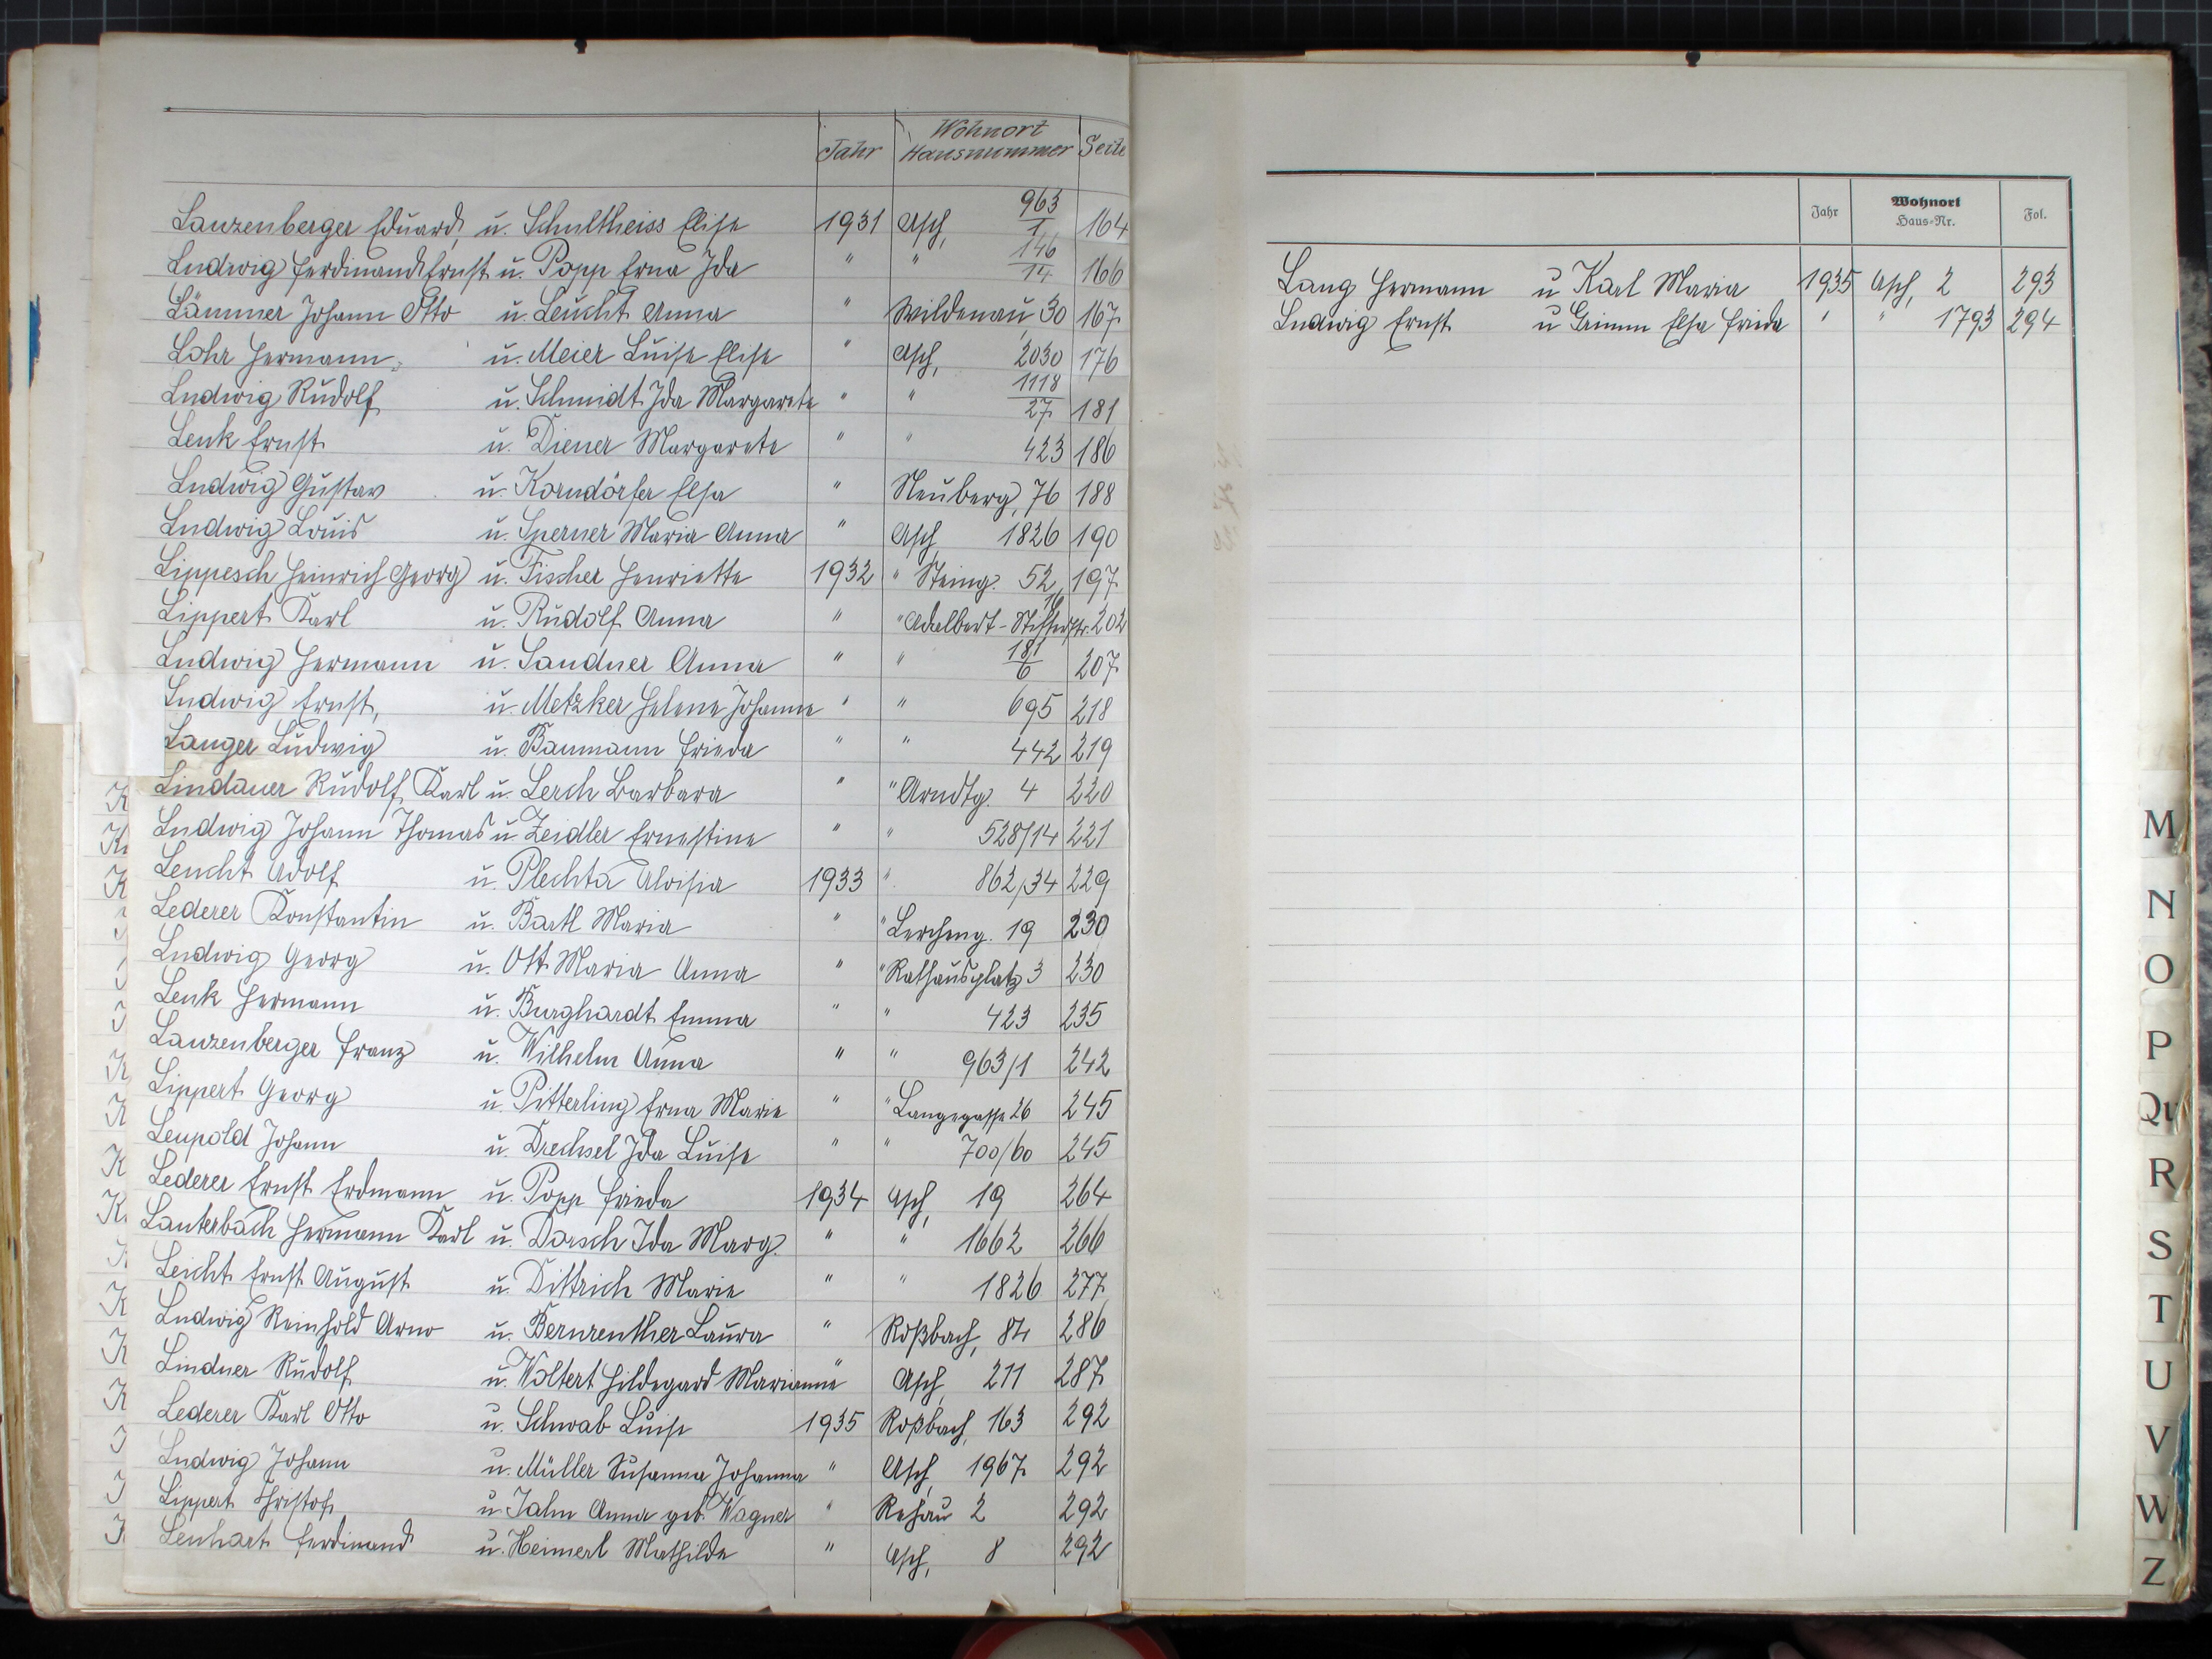 Jahr Wohnort Hausnummer Seite
Lanzenberger Eduard, u. Schultheiss Elise 1931 Asch, 963/1 164
Ludwig Ferdinand Ernst u. Popp Erna Ida " " 146/14 166
Lämmer Johann Otto u. Leucht Anna " Wildenau, 30 167
Lohr Hermann, u. Meier Luise Elise " Asch, 2030 176
Ludwig Rudolf u. Schmidt Ida Margarete " " 1118/27 181
Lenk Ernst u. Diener Margarete " " 423 186
Ludwig Gustav u. Korndörfer Elsa " Neuberg, 76 188
Ludwig Louis u. Sperner Maria Anna " Asch 1826 190
Lippesch Heinrich Georg u. Fischer Henriette 1932 " Steing. 52 197
Lippert Karl u. Rudolf Anna " " Adalbert-Stifterstr. 16 202
Ludwig Hermann u. Sandner Anna " " 181/6 207
Ludwig Ernst, u. Metzker Helene Johanne " " 695 218
Langer Ludwig u. Baumann Frieda " " 442 219
Lindauer Rudolf Karl u. Lerch Barbara " " Arndtg. 4 220
Ludwig Johann Thomas u. Zeidler Ernestine " " 528/14 221
Leucht Adolf u. Plechta Aloisia 1933 " 862/34 229
Lederer Konstantin u. Bartl Maria " " Lercheng. 19 230
Ludwig Georg u. Ott Maria Anna " " Rathausplatz 3 230
Lenk Hermann u. Burghardt Emma " " 423 235
Lanzenberger Franz u. Wilhelm Anna " " 963/1 242
Lippert Georg u. Pitterling Erna Marie " " Langegasse 26 245
Leupold Johann u. Drechsel Ida Luise " " 700/60 245
Lederer Ernst Erdmann u. Popp Frieda 1934 Asch, 19 264
Lauterbach Hermann Karl u. Dorsch Ida Marg. " " 1662 266
Leicht Ernst August u. Dittrich Marie " " 1826 277
Ludwig Reinhold Arno u. Bernreuther Laura " Roßbach, 84 286
Lindner Rudolf u. Woltert Hildegard Marianne " Asch, 211 287
Lederer Karl Otto u. Schwab Luise 1935 Roßbach, 163 292
Ludwig Johann u. Müller Susanna Johanna " Asch, 1967 292
Lippert Christof u. Jahn Anna geb. Wagner " Rehau 2 292
Lenhart Ferdinand u. Heimerl Mathilde " Asch, 8 292
Jahr Wohnort Haus-Nr. Fol.
Lang Hermann u Karl Maria 1935 Asch, 2 293
Ludwig Ernst u Grimm Elsa Frieda " " 1793 294
M
N
O
P
Qu
R
S
T
U
V
W
Z